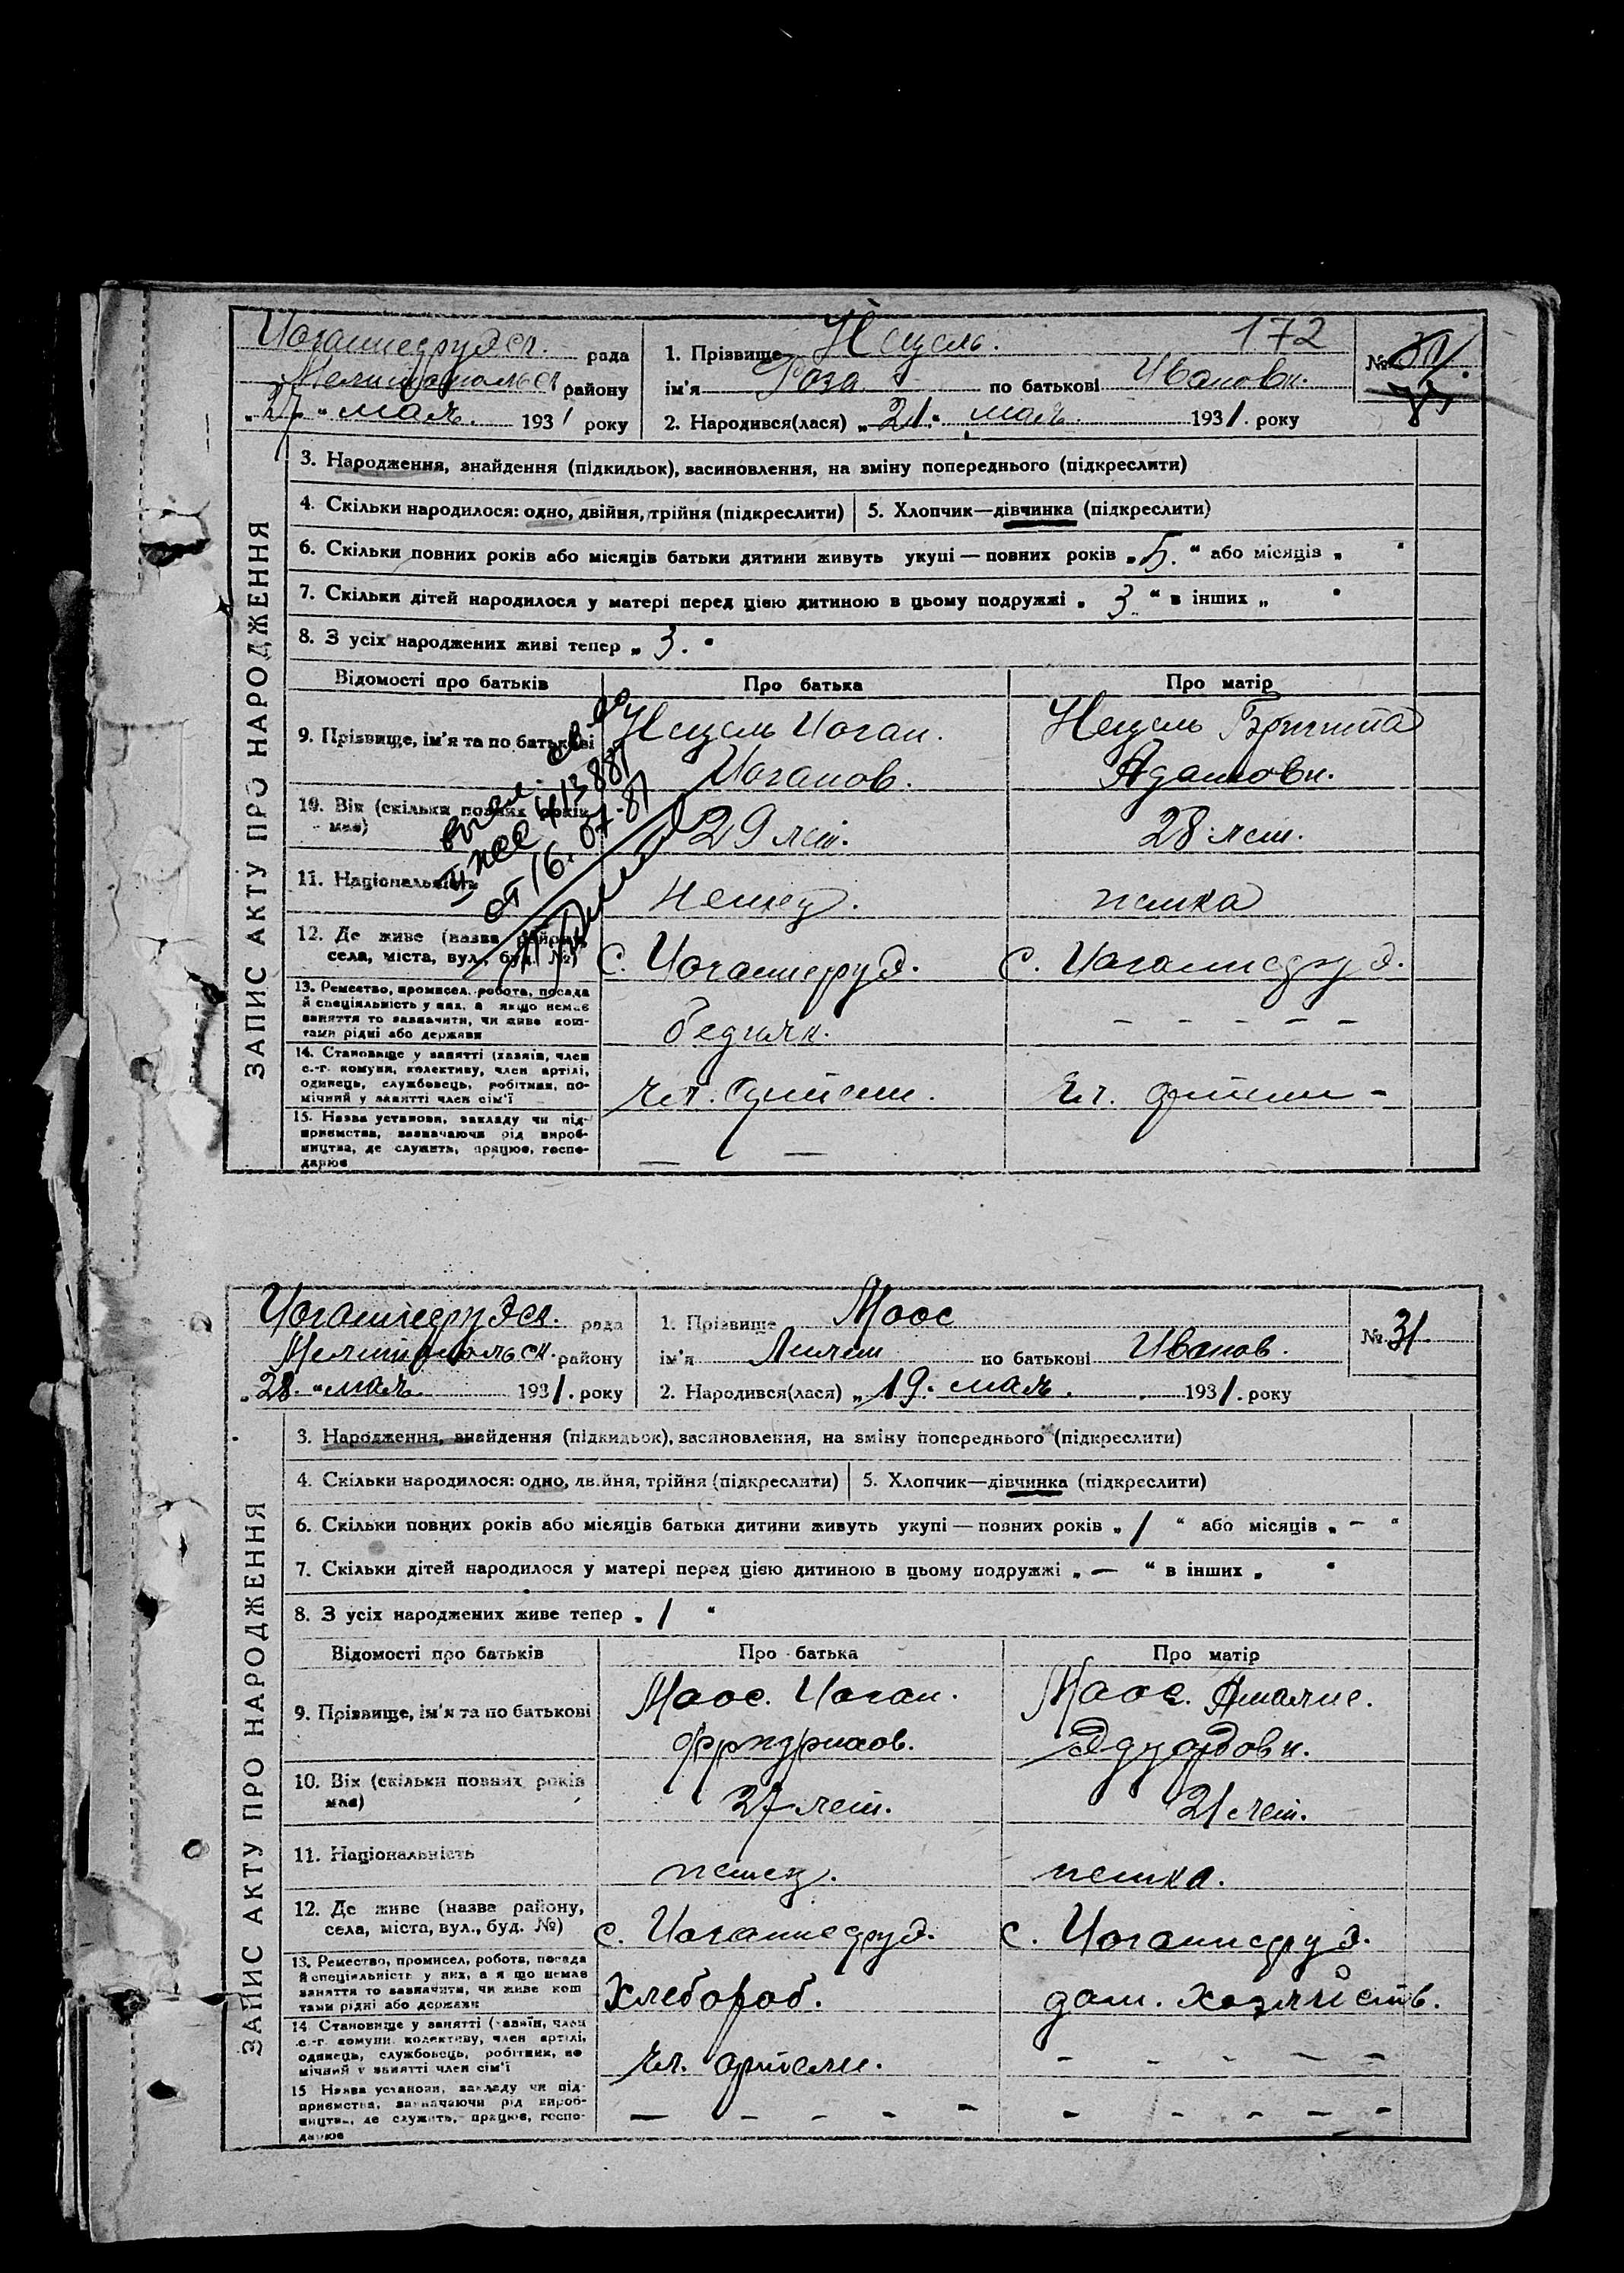 ЗАПИС АКТУ ПРО НАРОДЖЕННЯ
172
рада
району
"27" мая 1931 року
1. Прізвище Нецель.
ім'я Роза по батькові Ивановн.
2. Народився(лася) "21" мая 1931. року
№
3. Народження, знайдення (підкидьок), засиновлення, на зміну попереднього (підкреслити)
4. Скільки народилося: одно, двійня, трійня (підкреслити)
5. Хлопчик—дівчинка (підкреслити)
6. Скільки повних років або місяців батьки дитини живуть укупі — повних років „5.“ або місяців „ “
7. Скільки дітей народилося у матері перед цією дитиною в цьому подружжі „3.“ в інших „ “
8. З усіх народжених живі тепер „3.“
Відомості про батьків
Про батька
Про матір
9. Прізвище, ім'я та по батькові
Нецель Иоган.
Иоганов.
Нецель Бригита
Адамовн.
10. Вік (скільки повних років має)
29 лет.
28 лет.
от 16.07.81
11. Національність
немец.
немка
12. Де живе (назва району,
села, міста, вул., буд. №)
с. Иоганнесруд.
с. Иоганнесруд.
13. Ремество, промисел, робота, посада
й спеціяльність у них, а якщо немає
заняття то зазначити, чи живе кош-
тами рідні або держави
бедняк.
- - - - -
14. Становище у занятті (хазяїн, член
с.-г. комуни, колективу, член артілі,
одинець, службовець, робітник, по-
мічний у занятті член сім'ї
чл. артели.
чл. артели -
15. Назва установи, закладу чи під-
приємства, зазначаючи рід вироб-
ництва, де служить, працює, госпо-
дарює
— —
ЗАПИС АКТУ ПРО НАРОДЖЕННЯ
Иоганнесрудск. рада
Мелитопольск. району
„28.“ мая 1931. року
1. Прізвище Маос
ім'я по батькові Иванов.
2. Народився(лася) „19. мая. 1931. року
№ 31.
3. Народження, знайдення (підкидьок), засиновлення, на зміну попереднього (підкреслити)
4. Скільки народилося: одно, двійня, трійня (підкреслити)
5. Хлопчик—дівчинка (підкреслити)
6. Скільки повних років або місяців батьки дитини живуть укупі — повних років „1“ або місяців „—“
7. Скільки дітей народилося у матері перед цією дитиною в цьому подружжі „—“ в інших „ “
8. З усіх народжених живе тепер „1“
Відомості про батьків
Про батька
Про матір
9. Прізвище, ім'я та по батькові
Маос. Иоган.
Фридрихов.
Маос. Амалие.
Эдуардовн.
10. Вік (скільки повних років
має)
27 лет.
21 лет.
11. Національність
немец.
немка.
12. Де живе (назва району,
села, міста, вул., буд. №)
с. Иоганнесруд.
с. Иоганнесруд.
13. Ремество, промисел, робота, посада
й спеціяльність у них, а якщо немає
заняття то зазначити, чи живе кош
тами рідні або держави
Хлебороб.
дом. хозяйств.
14 Становище у занятті (хазяїн, член
с.-г. комуни, колективу, член артілі,
одинець, службовець, робітник, по
мічний у занятті член сім'ї
чл. артели.
- - - - -
15 Назва установи, закладу чи під-
приємства, зазначаючи рід вироб-
ництва, де служить, працює, госпо-
дарює
— - - - -
- - - - -